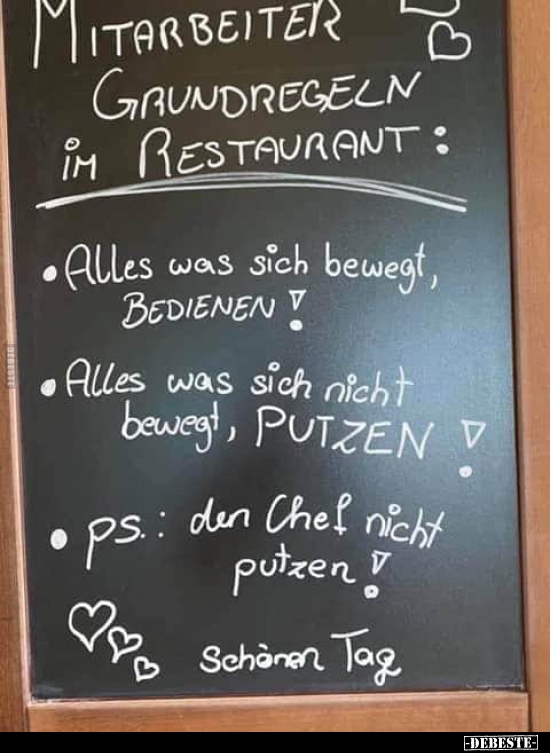 MITARBEITER
GRUNDREGELN
iM RESTAURANT:
• Alles was sich bewegt,
BEDIENEN!
• Alles was sich nicht
bewegt, PUTZEN!
• ps.: den Chef nicht
putzen!
Schönen Tag
-DEBESTE-